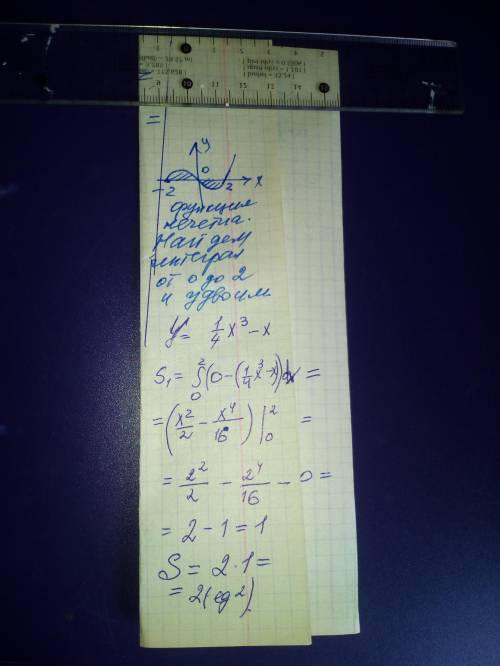 =
y
0
-2
2
x
функция
нечетна.
Найдем
интеграл
от 0 до 2
и удвоим
y = 1/4 x³ - x
S₁ = ∫₀² (0 - (1/4 x³ - x)) dx =
= (x²/2 - x⁴/16) |₀² =
= 2²/2 - 2⁴/16 - 0 =
= 2 - 1 = 1
S = 2 · 1 =
= 2 (ед²)